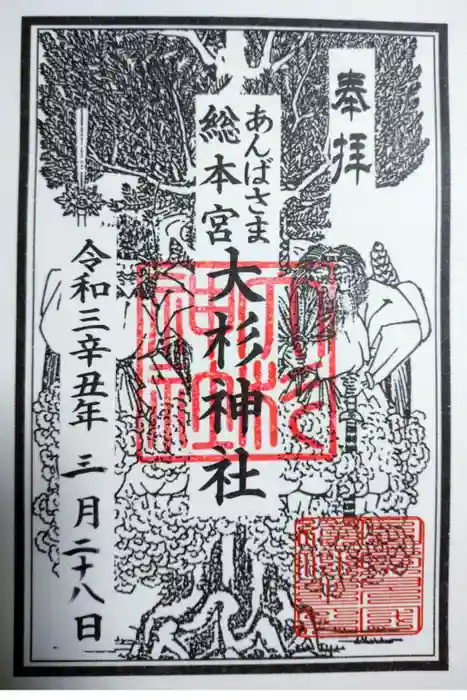 奉拝
あんばさま
総本宮
大杉神社
令和三辛丑年 三月二十八日